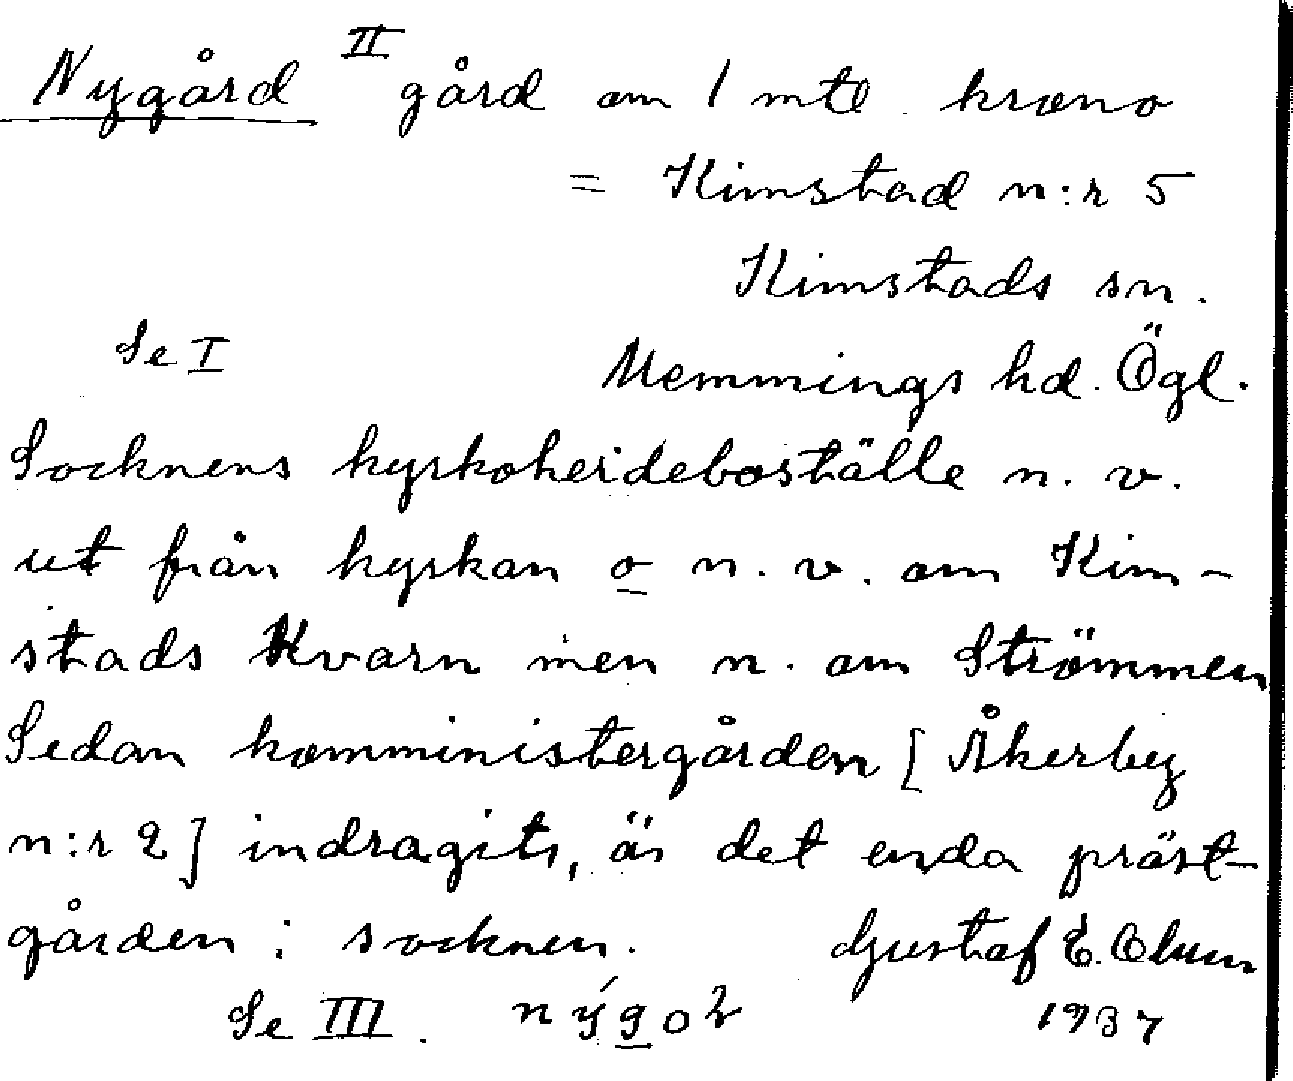 Nygård II gård om 1 mtl krono
= Kimstad n:r 5
Kimstads sn.
Se I Memmings hd. Ögl.
Socknens kyrkoherdeboställe n. v.
ut från kyrkan o n. v. om Kim-
stads Kvarn men n. om Strömmen
Sedan komministergården [Åkerby
n:r 2] indragits, är det enda präst-
gården i socknen. Gustaf E. Olsson
Se III. 1937